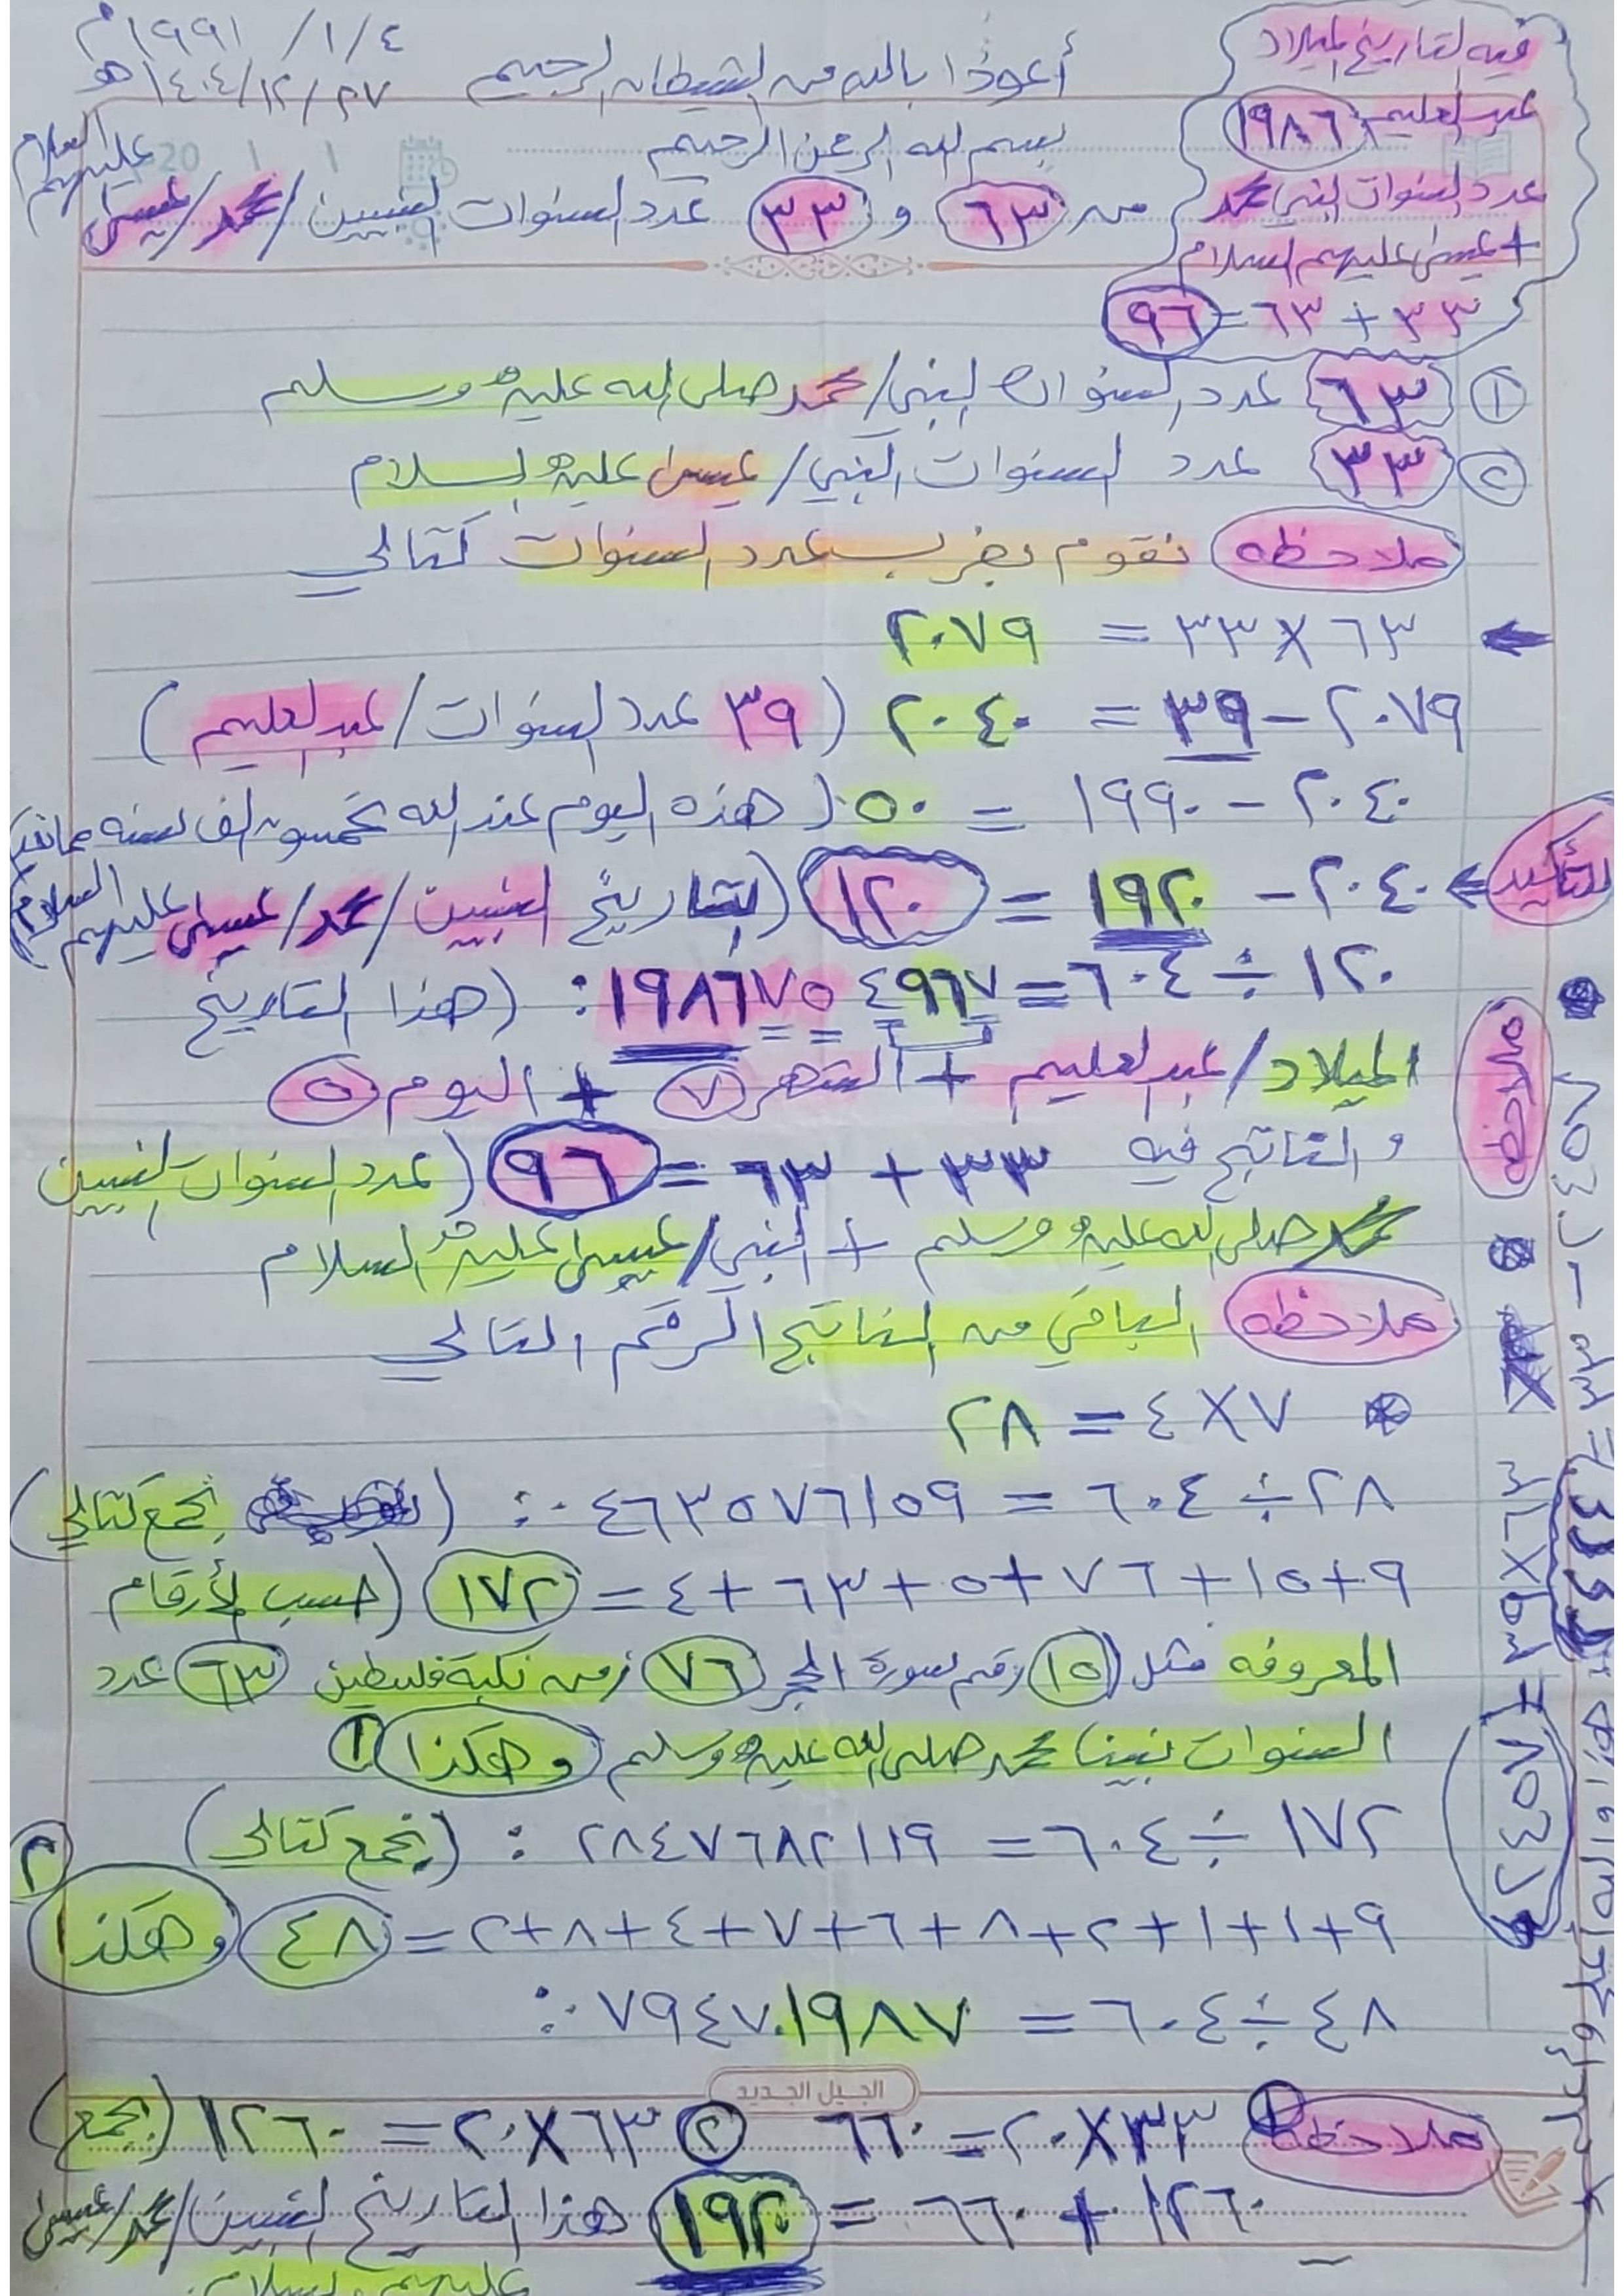 ١٩٩١ / ١ / ٤ م
١٤٠٤/١٢/٢٧ هـ
أعوذا بالله من الشيطان الرجيم
بسم الله الرحمن الرحيم
فيه لتاريخ لميلاد
عبدالعليم ١٩٨٦
عدد السنوات النبي محمد
+ عيسى عليهم السلام
٣٣ + ٦٣ = ٩٦
20 1 1
من ٦٣ و ٣٣ عدد السنوات النبيين / محمد / عيسى عليهم السلام
١ ٦٣ عدد السنوات النبي / محمد صلى الله عليه وسلم
٢ ٣٣ عدد السنوات النبي / عيسى عليه السلام
ملاحظه نقوم بضرب عدد السنوات كتالي
٦٣ × ٣٣ = ٢٠٧٩
٢٠٧٩ - ٣٩ = ٢٠٤٠ (٣٩ عدد السنوات / عبدالعليم)
٢٠٤٠ - ١٩٩٠ = ٥٠ (هذه اليوم عند الله خمسون الف سنه
للتأكيد ٢٠٤٠ - ١٩٢٠ = ١٢٠ (لتاريخ النبيين / محمد / عيسى عليهم السلام)
١٢٠ ÷ ٦٠٤ = ١٩٨٦٧٥٤٩٦٧ : (هذا التاريخ
ملاحظه
الميلاد / عبدالعليم + الشهر ٧ + اليوم ٥
والناتج فيه ٣٣ + ٦٣ = ٩٦ (عدد السنوات النبيين
محمد صلى الله عليه وسلم + النبي / عيسى عليه السلام
ملاحظه الباقي من الناتج الرقم التالي
٧ × ٤ = ٢٨
٢٨ ÷ ٦٠٤ = ٠٤٦٣٥٧٦١٥٩ : (نجمع كتالي)
٩ + ١٥ + ٧٦ + ٥ + ٦٣ + ٤ = ١٧٢ (حسب لأرقام
المعروفه مثل (١٥) رقم سورة الحجر (٧٦) زمن نكبة فلسطين (٦٣) عدد
السنوات نبينا محمد صلى الله عليه وسلم (وهكذا) ١
١٧٢ ÷ ٦٠٤ = ٢٨٤٧٦٨٢١١٩ : (نجمع كتالي)
٢
٩+١+١+٢+٨+٦+٧+٤+٨+٢ = ٤٨ وهكذا
٤٨ ÷ ٦٠٤ = ٠٧٩٤٧٠١٩٨٧ :
الجيل الجديد
ملاحظه ١ ٣٣ × ٢٠ = ٦٦٠ ٢ ٦٣ × ٢٠ = ١٢٦٠ (نجمع)
١٢٦٠ + ٦٦٠ = ١٩٢٠ هذا التاريخ النبيين / محمد / عيسى
عليهم السلام